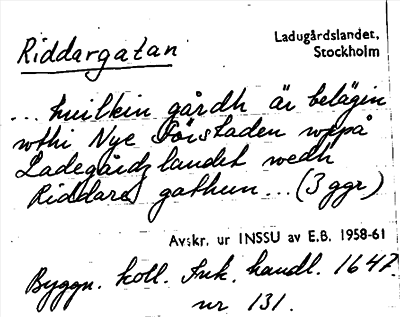 Riddargatan
Ladugårdslandet,
Stockholm
... huilkin gårdh är belägin
wthi Nye Förstaden wppå
Ladegårdzlandet wedh
Riddare gathun ... (3 ggr)
Avskr. ur INSSU av E.B. 1958-61
Byggn. koll. Ink. handl. 1647.
nr 131.